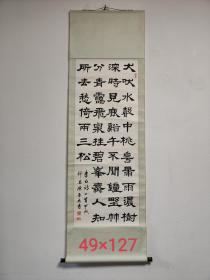 犬吠水聲中桃花帶雨濃樹
深時見鹿谿午不聞鐘野竹
分青靄飛泉挂碧峯無人知
所去愁倚兩三松
李白詩
49×127